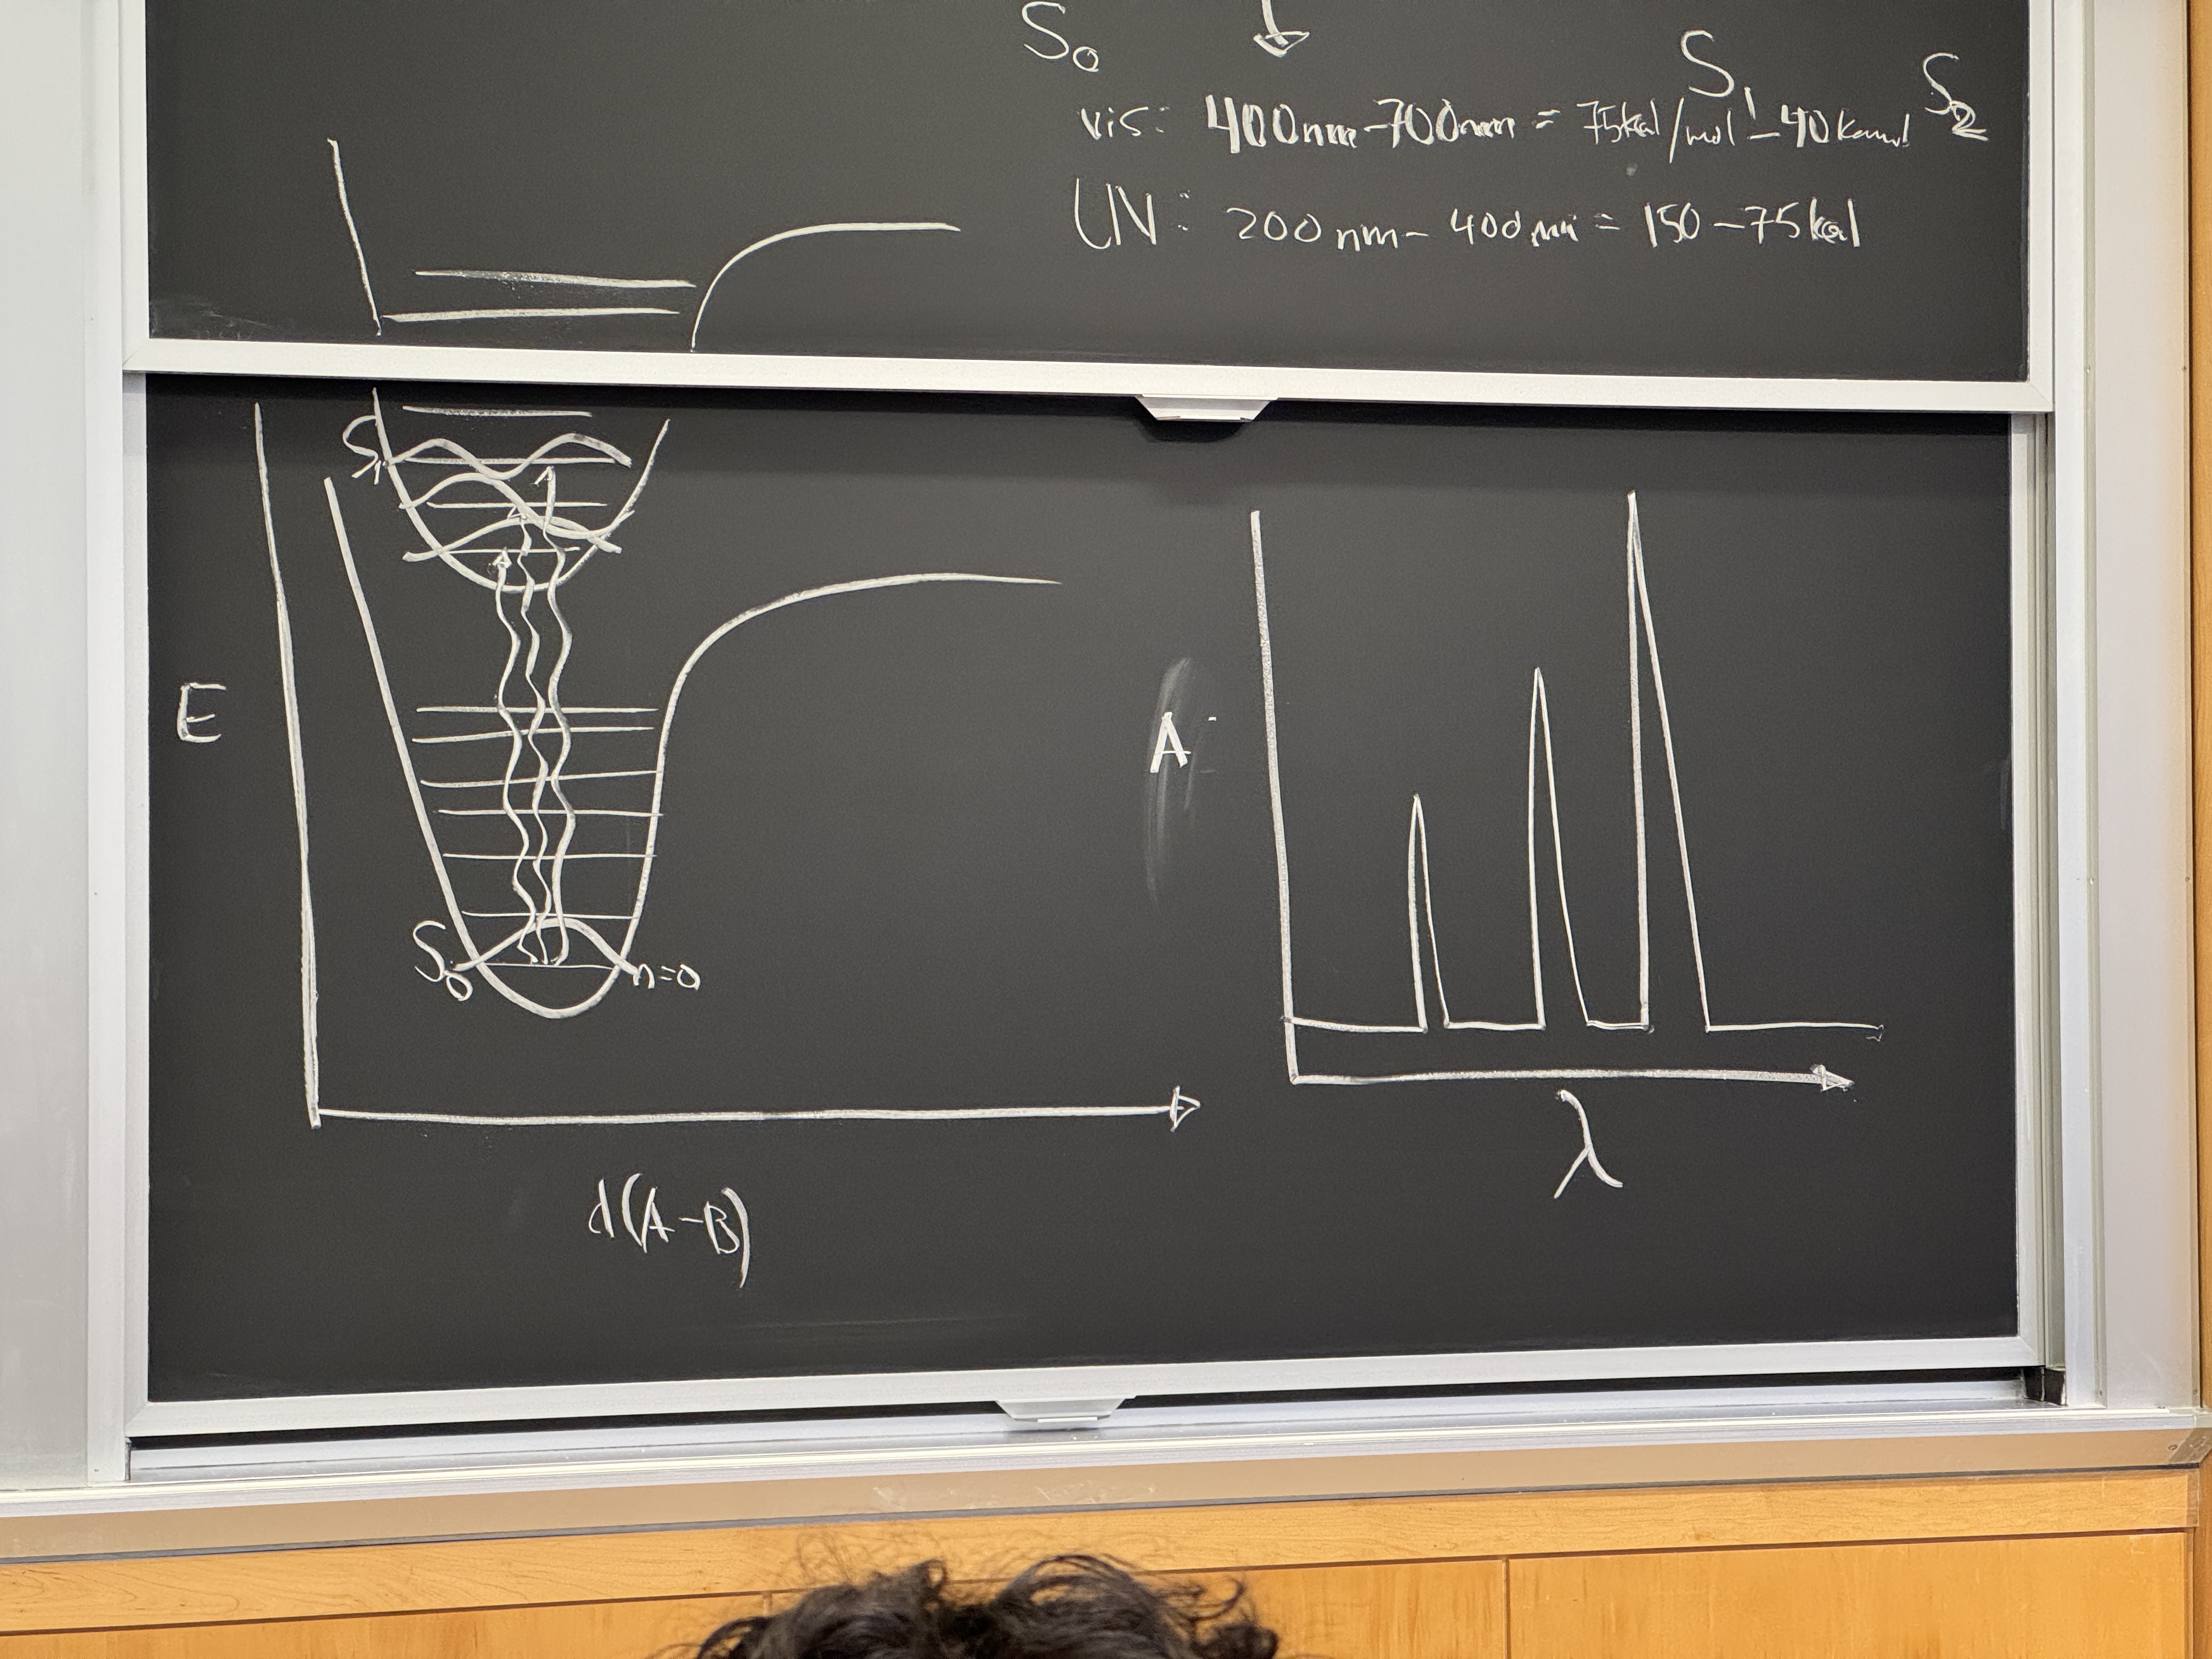 S₀
S₁ S₂
vis: 400nm-700nm = 75kcal/mol - 40
UV: 200nm - 400nm = 150-75kcal
S₁
E
A
S₀ n=0
λ
d(A-B)